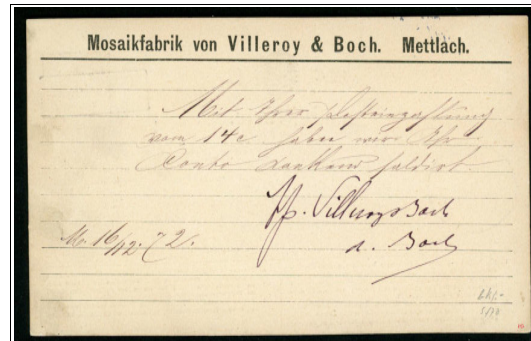 Mosaikfabrik von Villeroy & Boch. Mettlach.
Mit Ihrer Posteinzahlung
vom 14c haben wir Ihr
Conto dankend saldirt.
pp. Villeroy & Boch
A. Boch
M. 16/12. 72.